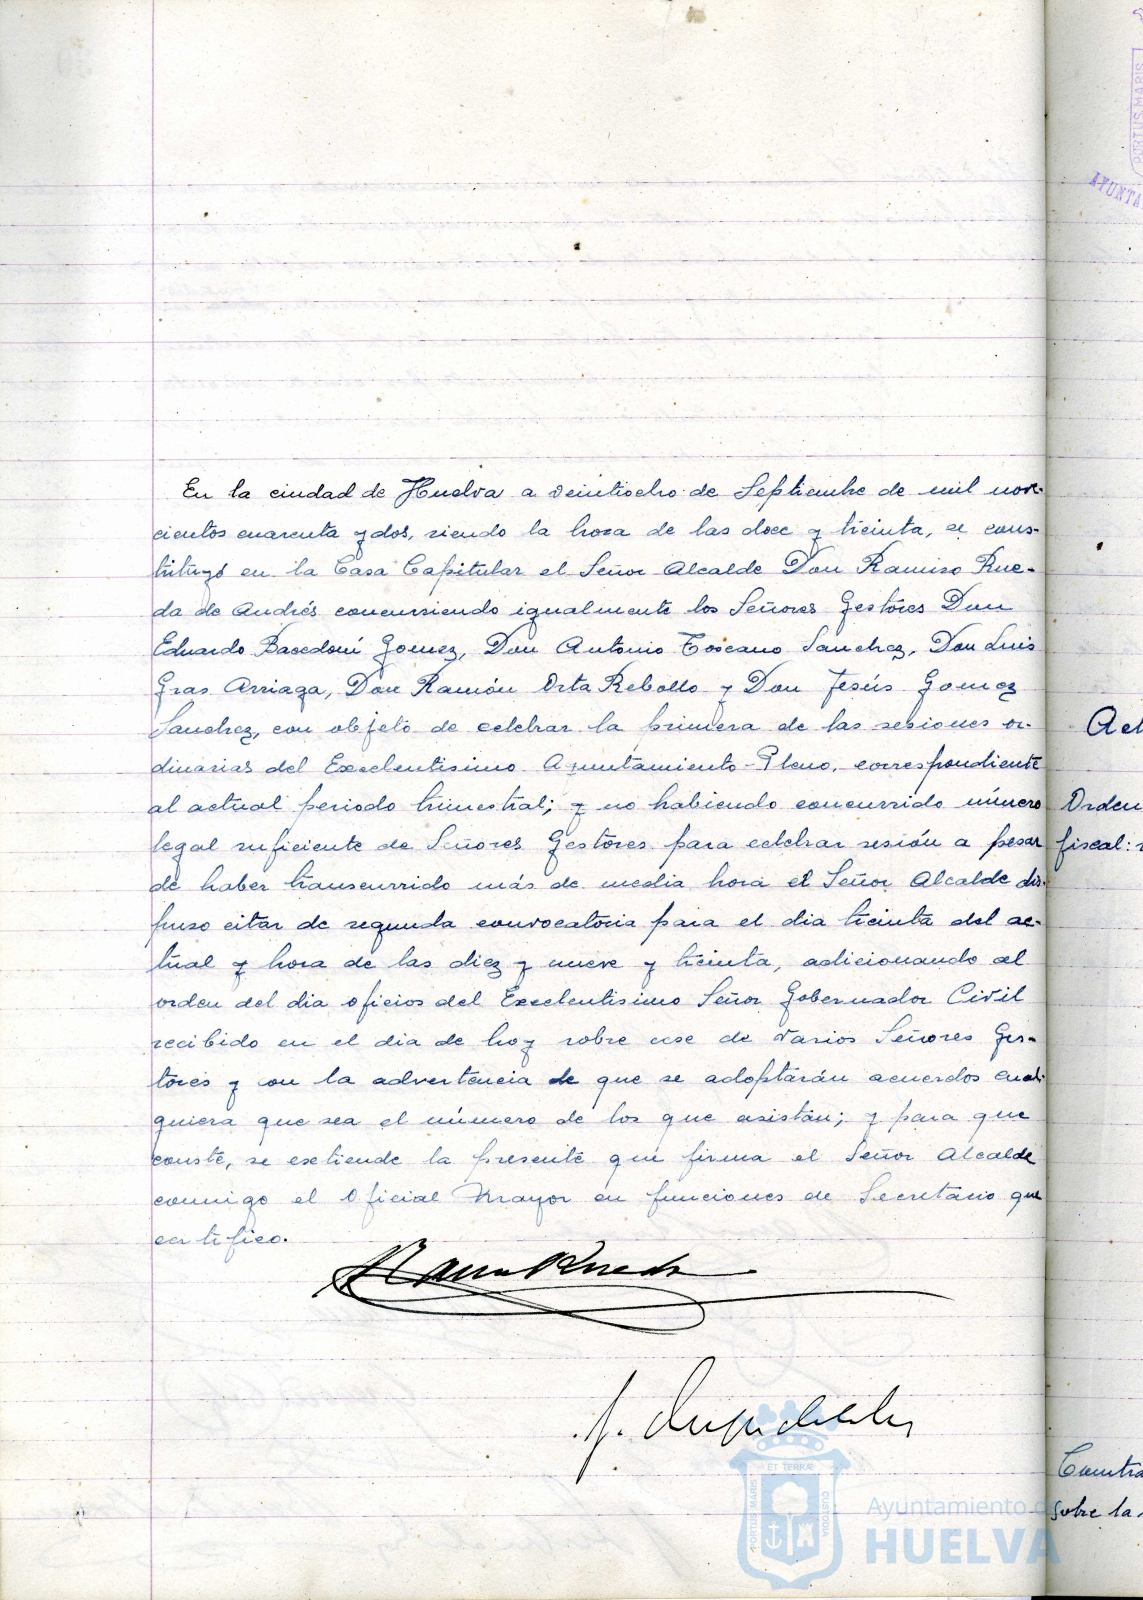 En la ciudad de Huelva a veintiocho de Septiembre de mil nove-
cientos cuarenta y dos, siendo la hora de las doce y treinta, se cons-
tituyó en la Casa Capitular el Señor Alcalde Don Ramiro Rue-
da de Andrés concurriendo igualmente los Señores Gestores Don
Eduardo Gomez, Don Antonio Toscano Sanchez, Don Luis
Gras Arriaga, Don Ramón Orta Rebollo y Don Jesús Gomez
Sanchez, con objeto de celebrar la primera de las sesiones or-
dinarias del Excelentisimo Ayuntamiento-Pleno, correspondiente
al actual periodo trimestral; y no habiendo concurrido número
legal suficiente de Señores Gestores para celebrar sesión a pesar
de haber transcurrido más de media hora el Señor Alcalde dis-
puso citar de segunda convocatoria para el dia treinta del ac-
tual y hora de las diez y nueve y treinta, adicionando al
orden del dia oficios del Excelentisimo Señor Gobernador Civil
recibido en el dia de hoy sobre cese de varios Señores Ges-
tores y con la advertencia de que se adoptarán acuerdos cual-
quiera que sea el número de los que asistan; y para que
conste, se extiende la presente que firma el Señor Alcalde
conmigo el Oficial Mayor en funciones de Secretario que
certifico.
Ramiro Rueda
PORTUS MARIS
ET TERRÆ
CUSTODIA
Ayuntamiento de
HUELVA
PORTUS MARIS
AYUNTA
Act
Orden
fiscal:
Contra
sobre la